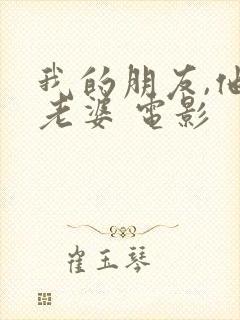 我的朋友,他
老婆 電影
崔玉琴